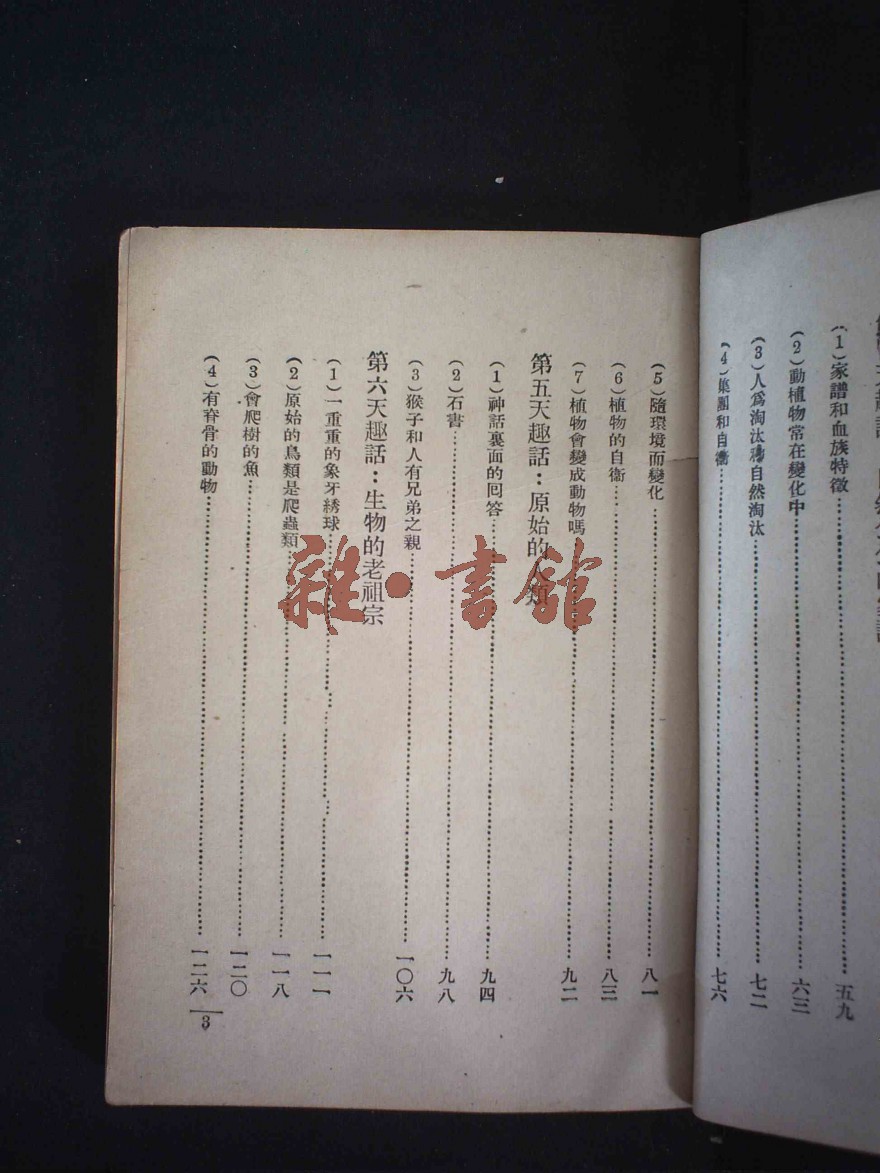 (1)家譜和血族特徵……五九
(2)動植物常在變化中……六三
(3)人爲淘汰和自然淘汰……七二
(4)集團和自衞……七六
(5)隨環境而變化……八一
(6)植物的自衞……八三
(7)植物會變成動物嗎……九二
第五天趣話：原始的人類
(1)神話裏面的囘答……九四
(2)石書……九八
(3)猴子和人有兄弟之親……一〇六
第六天趣話：生物的老祖宗
(1)一重重的象牙綉球……一一一
(2)原始的鳥類是爬蟲類……一一八
(3)會爬樹的魚……一二〇
(4)有脊骨的動物……一二六
3
雜·書館